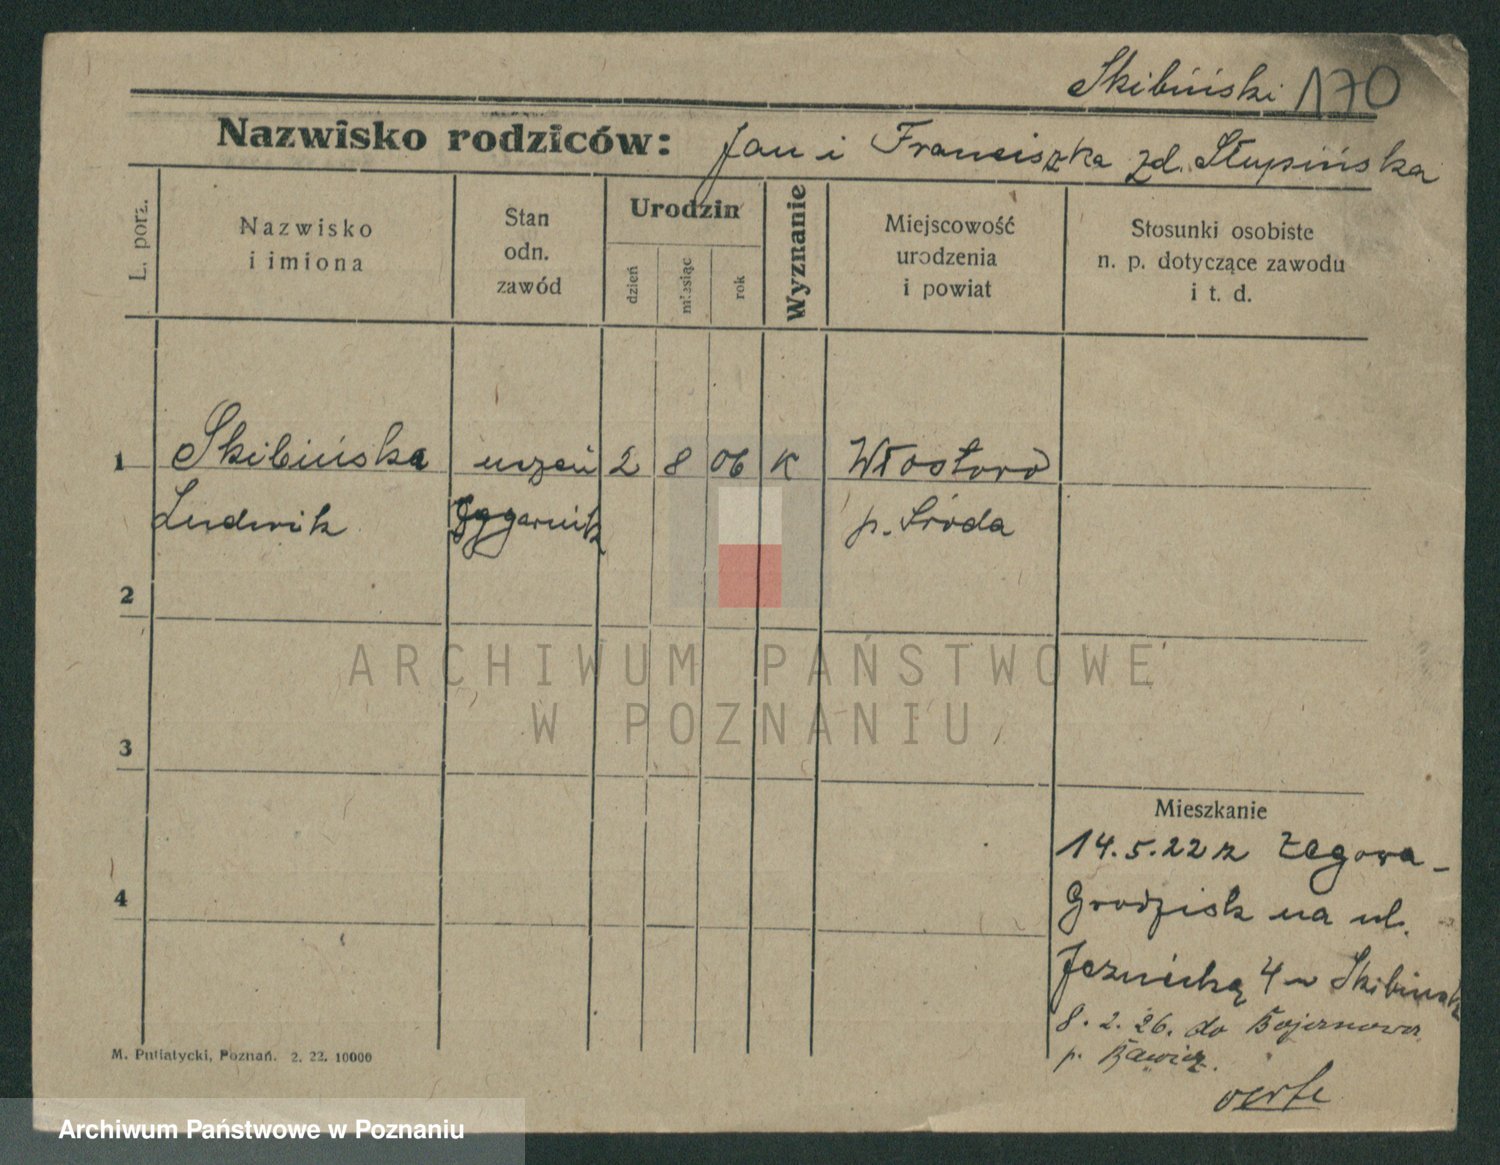 Skibiński 170
Nazwisko rodziców: Jan i Franciszka zd. Słupińska
L. porz.
Nazwisko
i imiona
Stan
odn.
zawód
Urodzin
dzień
miesiąc
rok
Wyznanie
Miejscowość
urodzenia
i powiat
Stosunki osobiste
n. p. dotyczące zawodu
i t. d.
1 Skibińska uczeń 2 8 06 K
Ludwik p. Środa
2
3
Mieszkanie
14.5.22 z
4
Grodzisk na ul.
4
8. 2. 26. do
p. Rawicz.
M. Putiatycki, Poznań. 2. 22. 10000
ARCHIWUM PAŃSTWOWE
W POZNANIU
Archiwum Państwowe w Poznaniu